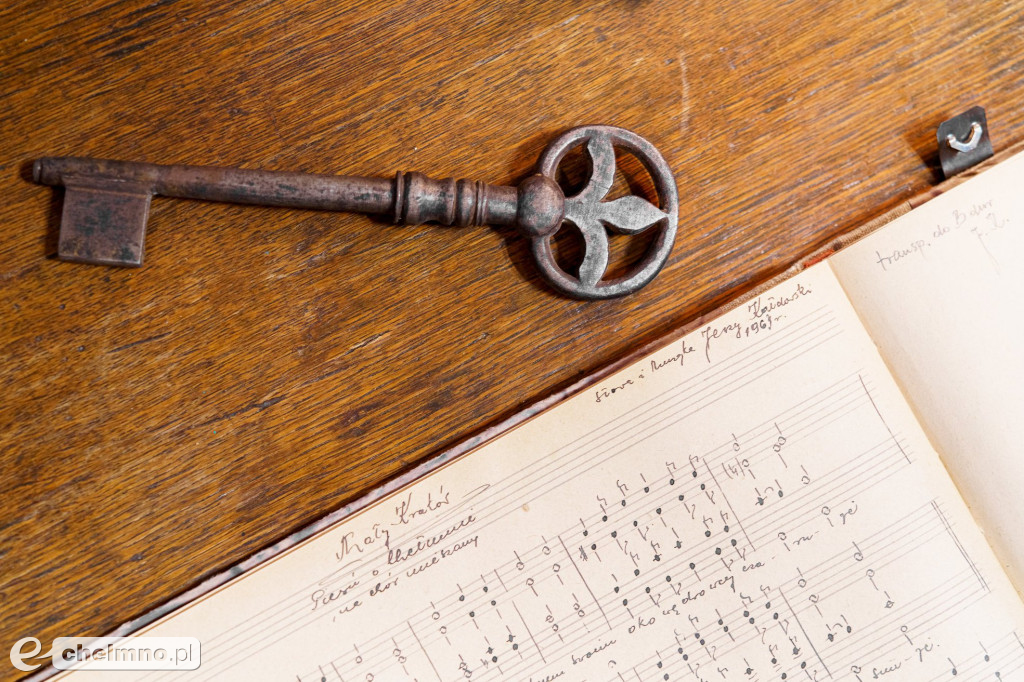 transp. do B dur
J. K.
słowa i muzyka Jerzy Kajdaski
1963 r.
Mały Kraków
Pieśń o Chełmnie
na chór mieszany
swoim oko wędrowcy cza - ru - je
su - je.
e-chelmno.pl